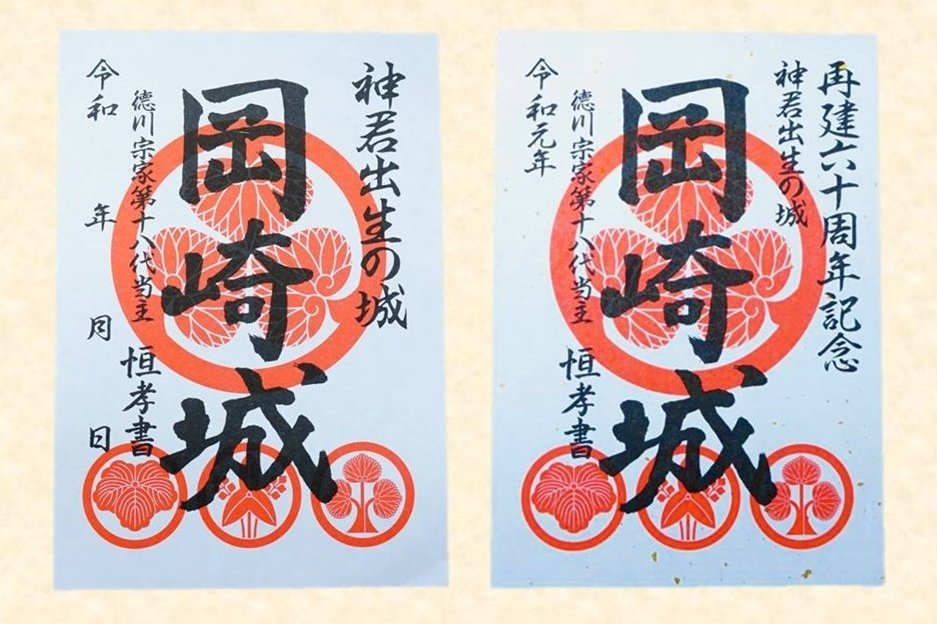 神君出生の城
岡崎城
德川宗家第十八代当主 恒孝書
令和 年 月 日
再建六十周年記念
神君出生の城
岡崎城
德川宗家第十八代当主 恒孝書
令和元年